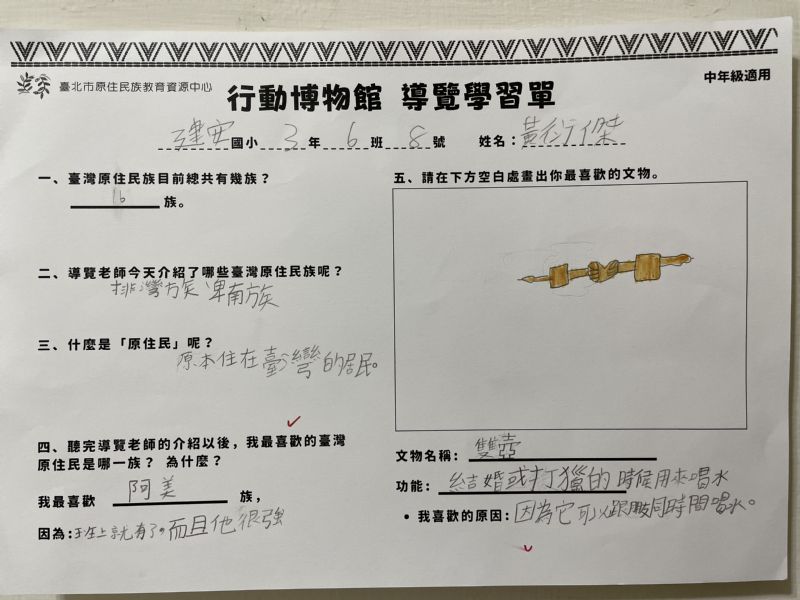 臺北市原住民族教育資源中心
行動博物館 導覽學習單
中年級適用
建安國小 3 年 6 班 8 號 姓名：黃衍傑
一、臺灣原住民族目前總共有幾族？
16 族。
二、導覽老師今天介紹了哪些臺灣原住民族呢？
排灣族 卑南族
三、什麼是「原住民」呢？
原本住在臺灣的居民。
四、聽完導覽老師的介紹以後，我最喜歡的臺灣
原住民是哪一族？ 為什麼？
我最喜歡 阿美 族，
因為：上就有了，而且他很強
五、請在下方空白處畫出你最喜歡的文物。
文物名稱： 雙壺
功能： 結婚或打獵的時候用來喝水
• 我喜歡的原因：因為它可以跟朋友同時間喝水。